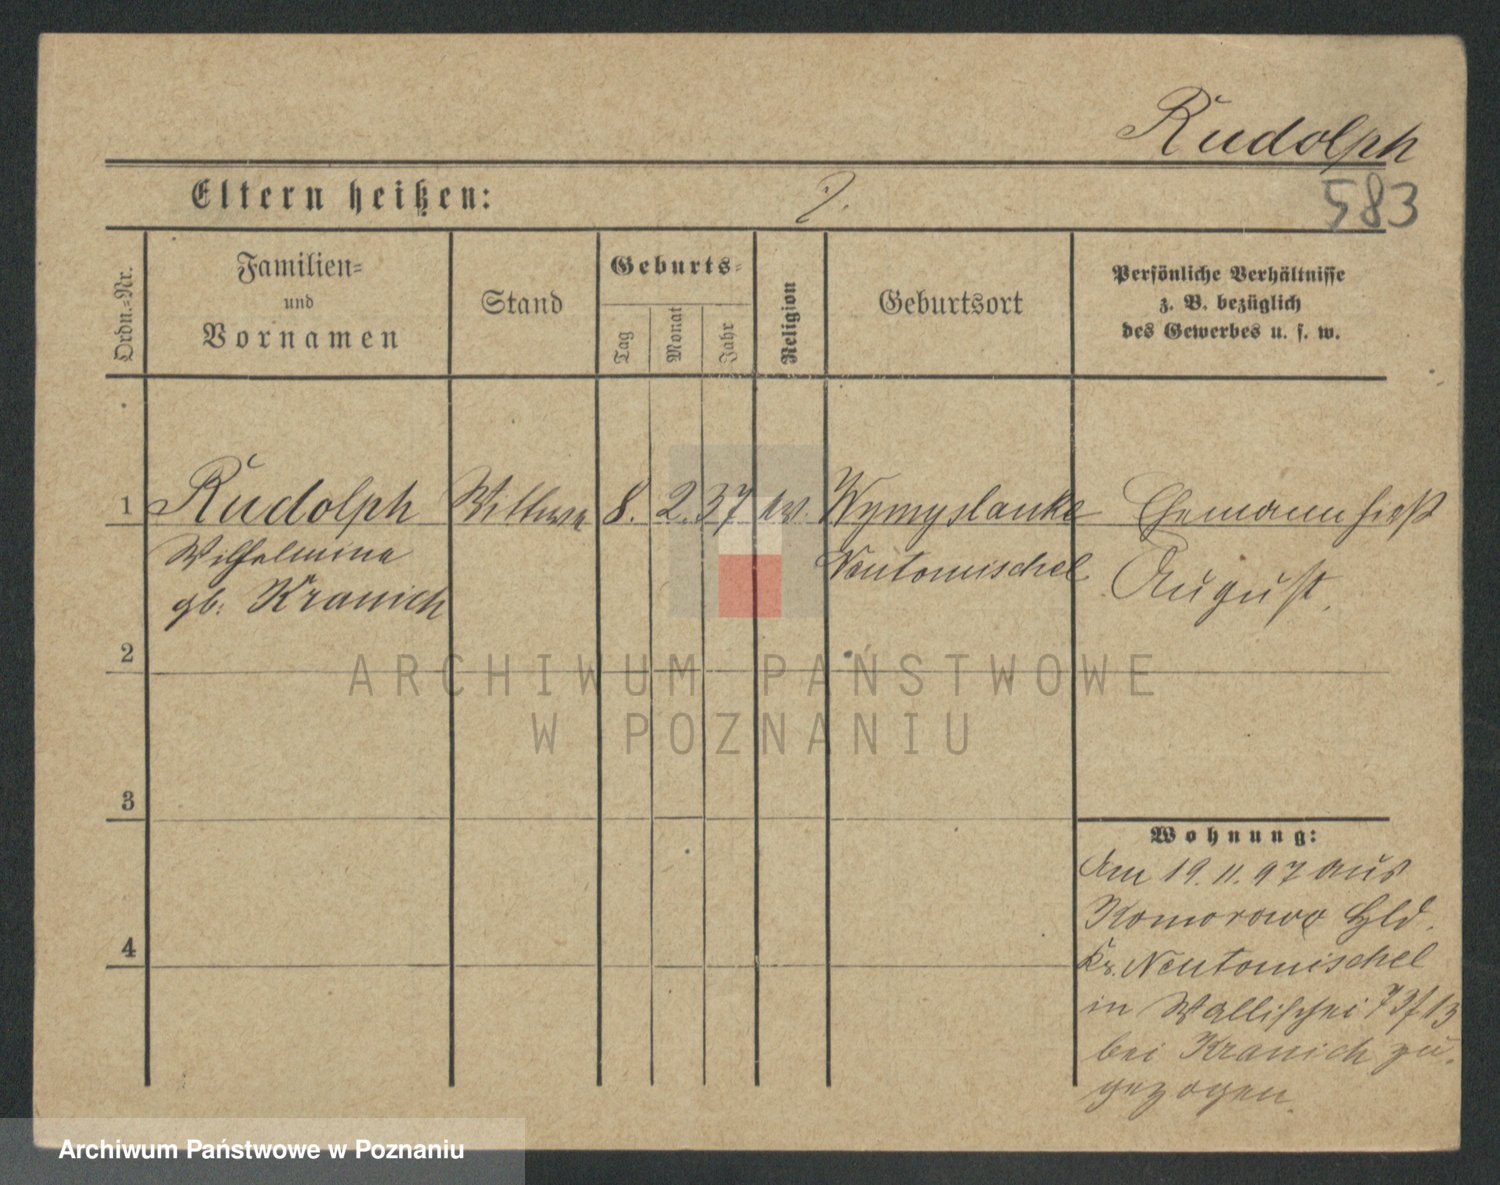 Rudolph
583
Eltern heißen: ?.
Ordn.=Nr.
Familien=
und
Vornamen
Stand
Geburts=
Tag
Monat
Jahr
Religion
Geburtsort
Persönliche Verhältnisse
z. B. bezüglich
des Gewerbes u. s. w.
1 Rudolph Wittwe 8. 2. 37 ev. Wymyslanke Ehemann hieß
Wilhelmine Neutomischel August.
gb: Kranich
2
3
4
Wohnung:
Am 19. 11. 97 aus
Komorowo Hld.
Kr. Neutomischel
in Wallischei
bei Kranich zu=
gezogen.
ARCHIWUM PAŃSTWOWE
W POZNANIU
Archiwum Państwowe w Poznaniu